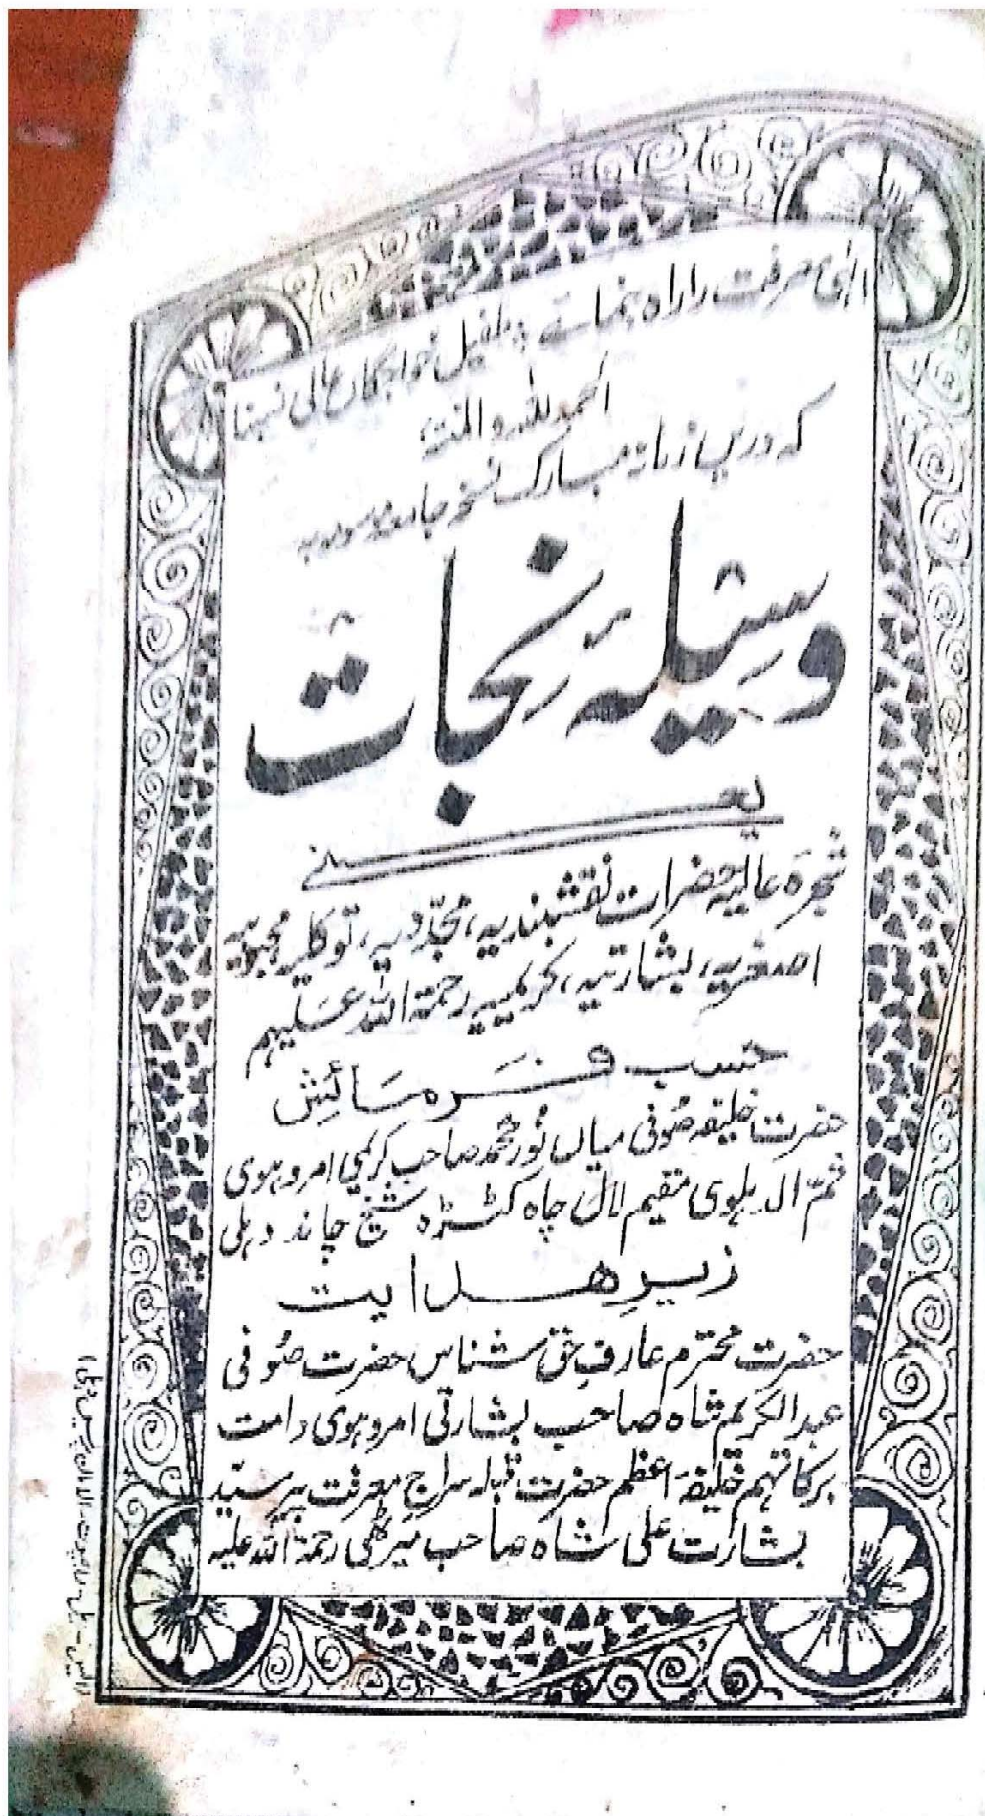 الہٰی معرفت را راہ بنمائے ۔ بطفیل خواجگان عالی
الحمد للہ والمنۃ
کہ دریں زمانہ مبارک نسخہ جامعہ موسومہ بہ
وسیلۂ نجات
یعنے
شجرۂ عالیہ حضرات نقشبندیہ، مجدّدیہ، توکلیہ محبوبیہ
اصغریہ، بشارتیہ، کریمیہ رحمۃ اللہ علیہم
حسب فرمائش
حضرت خلیفہ صُوفی میاں نُور محمد صاحب کریمی امروہوی
ثمّ الدہلوی مقیم لال چاہ کٹرہ شیخ چاند دہلی
زیرِ ھدایت
حضرت محترم عارفِ حق شناس حضرت صُوفی
عبدالکریم شاہ صاحب بشارتی امروہوی دامت
برکاتہم خلیفۂ اعظم حضرت قبلہ سراجِ معرفت پیر سیّد
بشارت علی شاہ صاحب میرٹھی رحمۃ اللہ علیہ